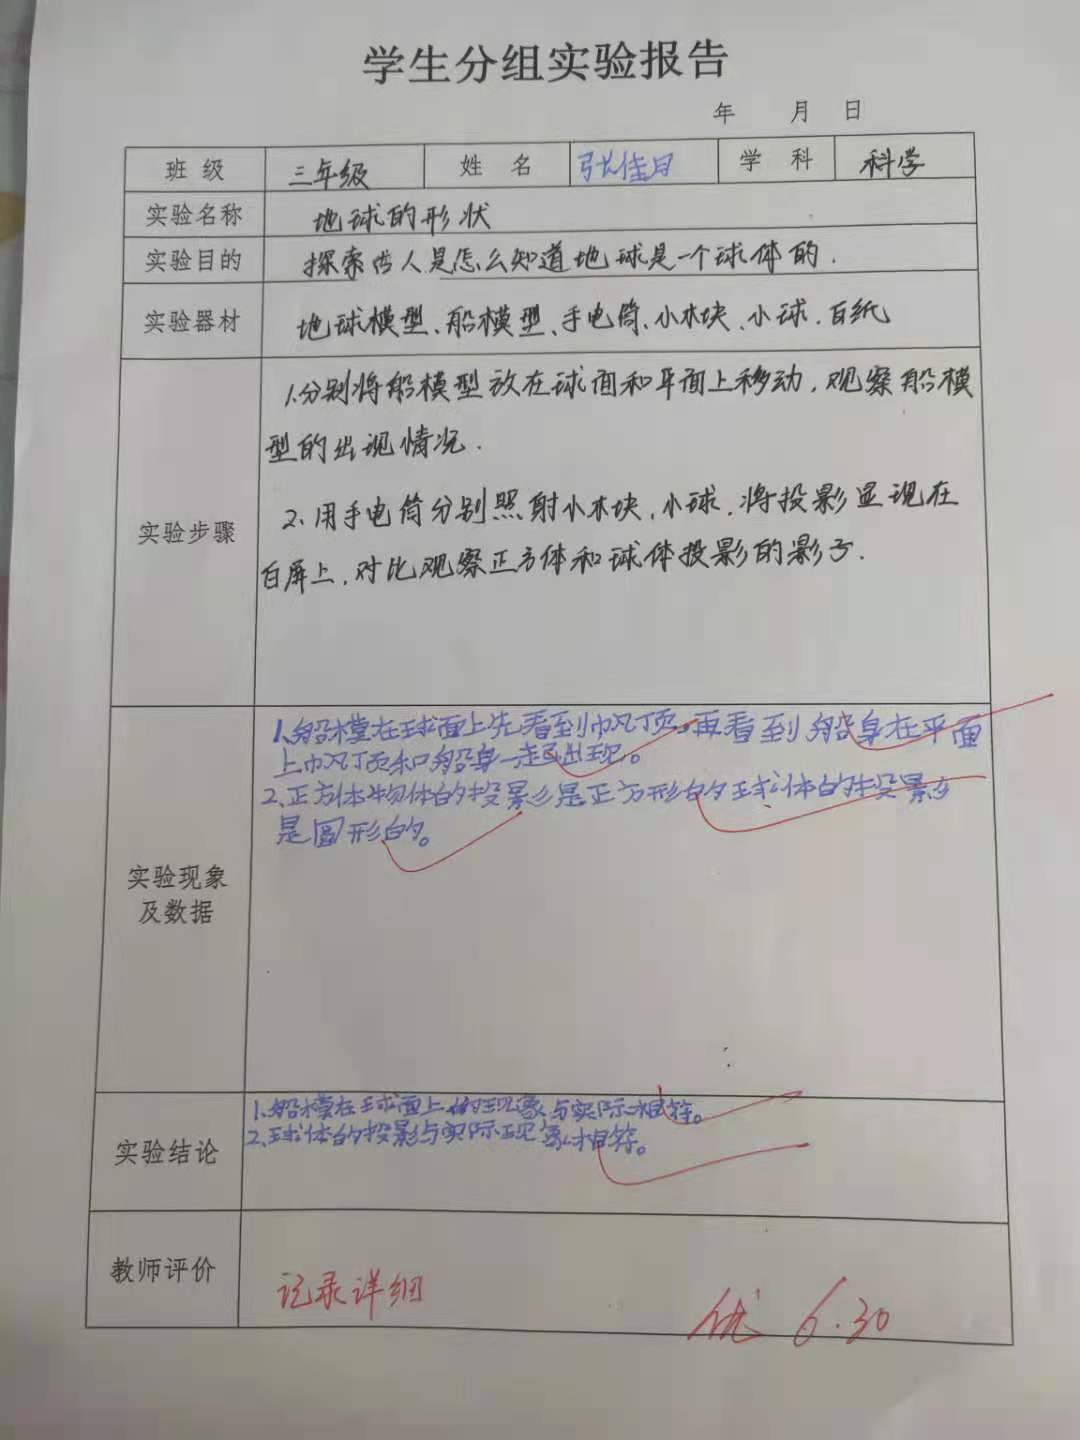 学生分组实验报告
年 月 日
班 级 三年级 姓 名 张佳月 学 科 科学
实验名称 地球的形状
实验目的 探索古人是怎么知道地球是一个球体的.
实验器材 地球模型、船模型、手电筒、小木块、小球、白纸
实验步骤
1.分别将船模型放在球面和平面上移动,观察船模
型的出现情况.
2.用手电筒分别照射小木块,小球,将投影显现在
白屏上,对比观察正方体和球体投影的影子.
实验现象
及数据
1.船模在球面上先看到帆顶,再看到船身在平面
上帆顶和船身一起出现。
2.正方体物体的投影是正方形的球体的投影
是圆形的。
实验结论
1.船模在球面上的现象与实际相符。
2.球体的投影与实际现象相符。
教师评价 记录详细
优 6.30